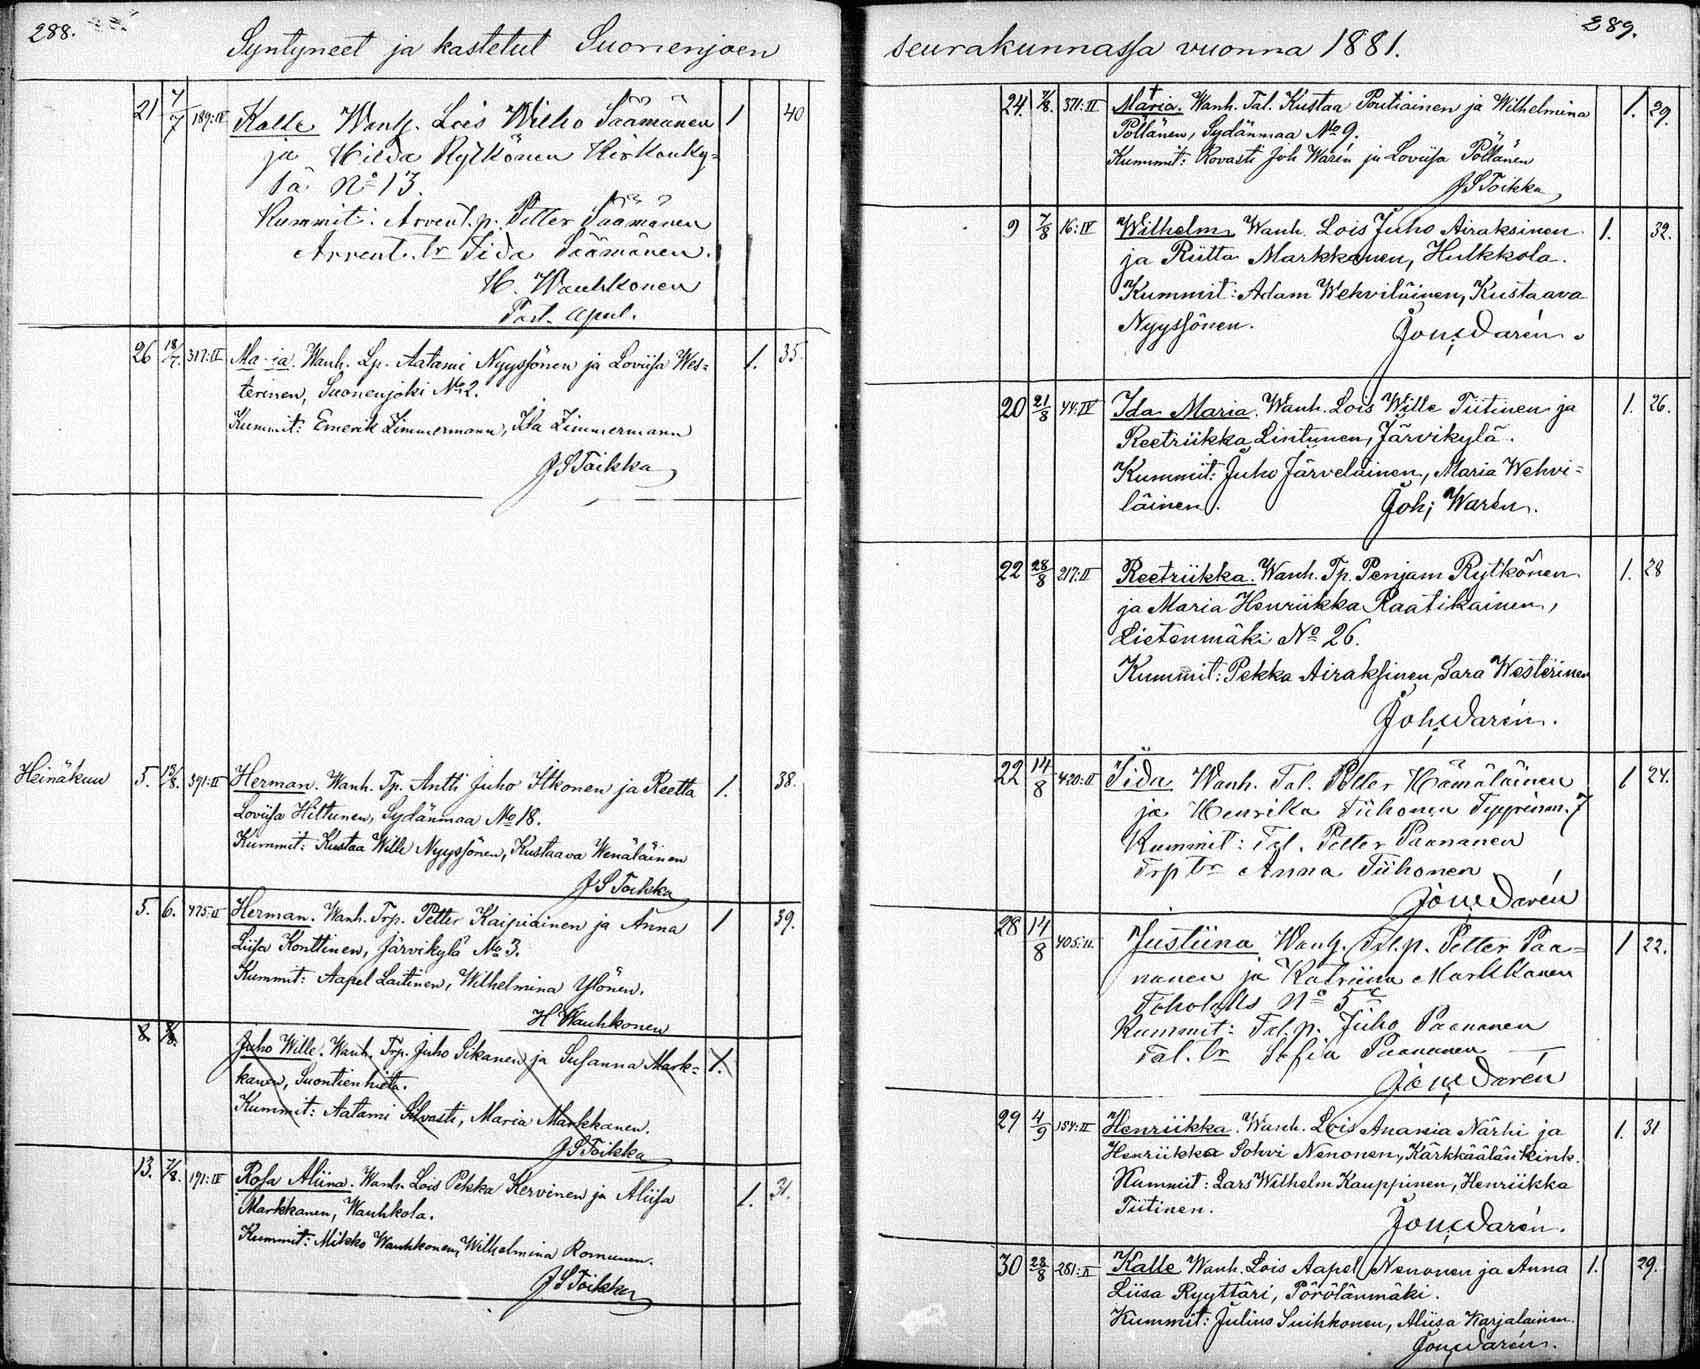 288.
Syntyneet ja kastetut Suonenjoen
21 7/7 189:IV Kalle Wanh. Lois Wilho Säämänen 1 40
ja Hilda Rytkönen Kirkonky-
lä No 13.
Kummit: Arvent. p. Petter Säämänen
Arvent. tr Iida Säämänen.
H. Wauhkonen
Past. apul.
26 18/7. 317:II Maria. Wanh. Lp. Aatami Nyyssönen ja Loviisa Wes- 1. 35.
terinen, Suonenjoki No 2.
Kummit: Emerik Zimmermann, Ida Zimmermann
J S Toikka
Heinäkuu 5. 391:II Herman. Wanh. Tp. Antti Juho Itkonen ja Reetta 1. 38.
Loviisa Hiltunen, Sydänmaa No 18.
Kummit: Kustaa Wille Nyyssönen, Kustaava Wenäläinen
J S Toikka
5. 6. 475:II Herman. Wanh. Trp. Petter Kaipiainen ja Anna 1 39.
Liisa Konttinen, Järvikylä No 3.
Kummit: Aapel Laitinen, Wilhelmina Ylönen.
H Wauhkonen
8. 8/8. Juho Wille. Wanh. Trp. Juho Sikanen ja Susanna Mark- 1.
kanen, Suontienhieta.
Kummit: Aatami Silvasti, Maria Markkanen.
J S Toikka
13. 7/8. 191:IV Rosa Aliina. Wanh. Lois Pekka Kervinen ja Aliisa 1. 31.
Markkanen, Wauhkola.
Kummit: Mikko Wauhkonen, Wilhelmina Romunen.
J S Toikka
289.
seurakunnassa vuonna 1881.
24. 7/8. 371:II Maria. Wanh. Tal. Kustaa Poutiainen ja Wilhelmina 1. 29.
Pöllänen, Sydänmaa No 9.
Kummit: Rovasti Joh Warén ja Loviisa Pöllänen
J S Toikka
9 7/8 16:IV Wilhelm Wanh. Lois Juho Airaksinen 1. 32.
ja Riitta Markkanen, Hulkkola.
Kummit: Adam Wehviläinen, Kustaava
Nyyssönen. Joh. Warén.
20 21/8 44:IV Ida Maria. Wanh. Lois Wille Tiitinen ja 1. 26.
Reetriikka Lintunen, Järvikylä.
Kummit: Juho Järveläinen, Maria Wehvi-
läinen. Joh; Warén.
22 28/8 217:II Reetriikka. Wanh. Tp. Penjam Rytkönen 1. 28
ja Maria Henriikka Raatikainen,
Lietenmäki No 26.
Kummit: Pekka Airaksinen, Sara Westerinen
Joh. Warén.
22 14/8 420:II Iida Wanh. Tal. Petter Hämäläinen 1 24.
ja Henrika Tiihonen 7
Kummit: Tal. Petter Paananen
Trp tr Anna Tiihonen
Joh. Warén
28 14/8 405:II Justiina Wanh. Tal.p. Petter Paa- 1 22.
nanen ja Katriina Markkanen
No 5
Kummit: Tal.p. Juho Paananen
Tal. tr Sofia Paananen
Joh. Warén
29 4/9 154:II Henriikka. Wanh. Lois Anania Närhi ja 1. 31
Henriikka Sohvi Nenonen, Kärkkäälänkink.
Kummit: Lars Wilhelm Kauppinen, Henriikka
Tiitinen. Joh. Warén.
30 28/8 281:II Kalle Wanh. Lois Aapel Nenonen ja Anna 1. 29.
Liisa Ryyttäri, Pörölänmäki.
Kummit: Julius Suihkonen, Aliisa Karjalainen.
Joh. Warén.